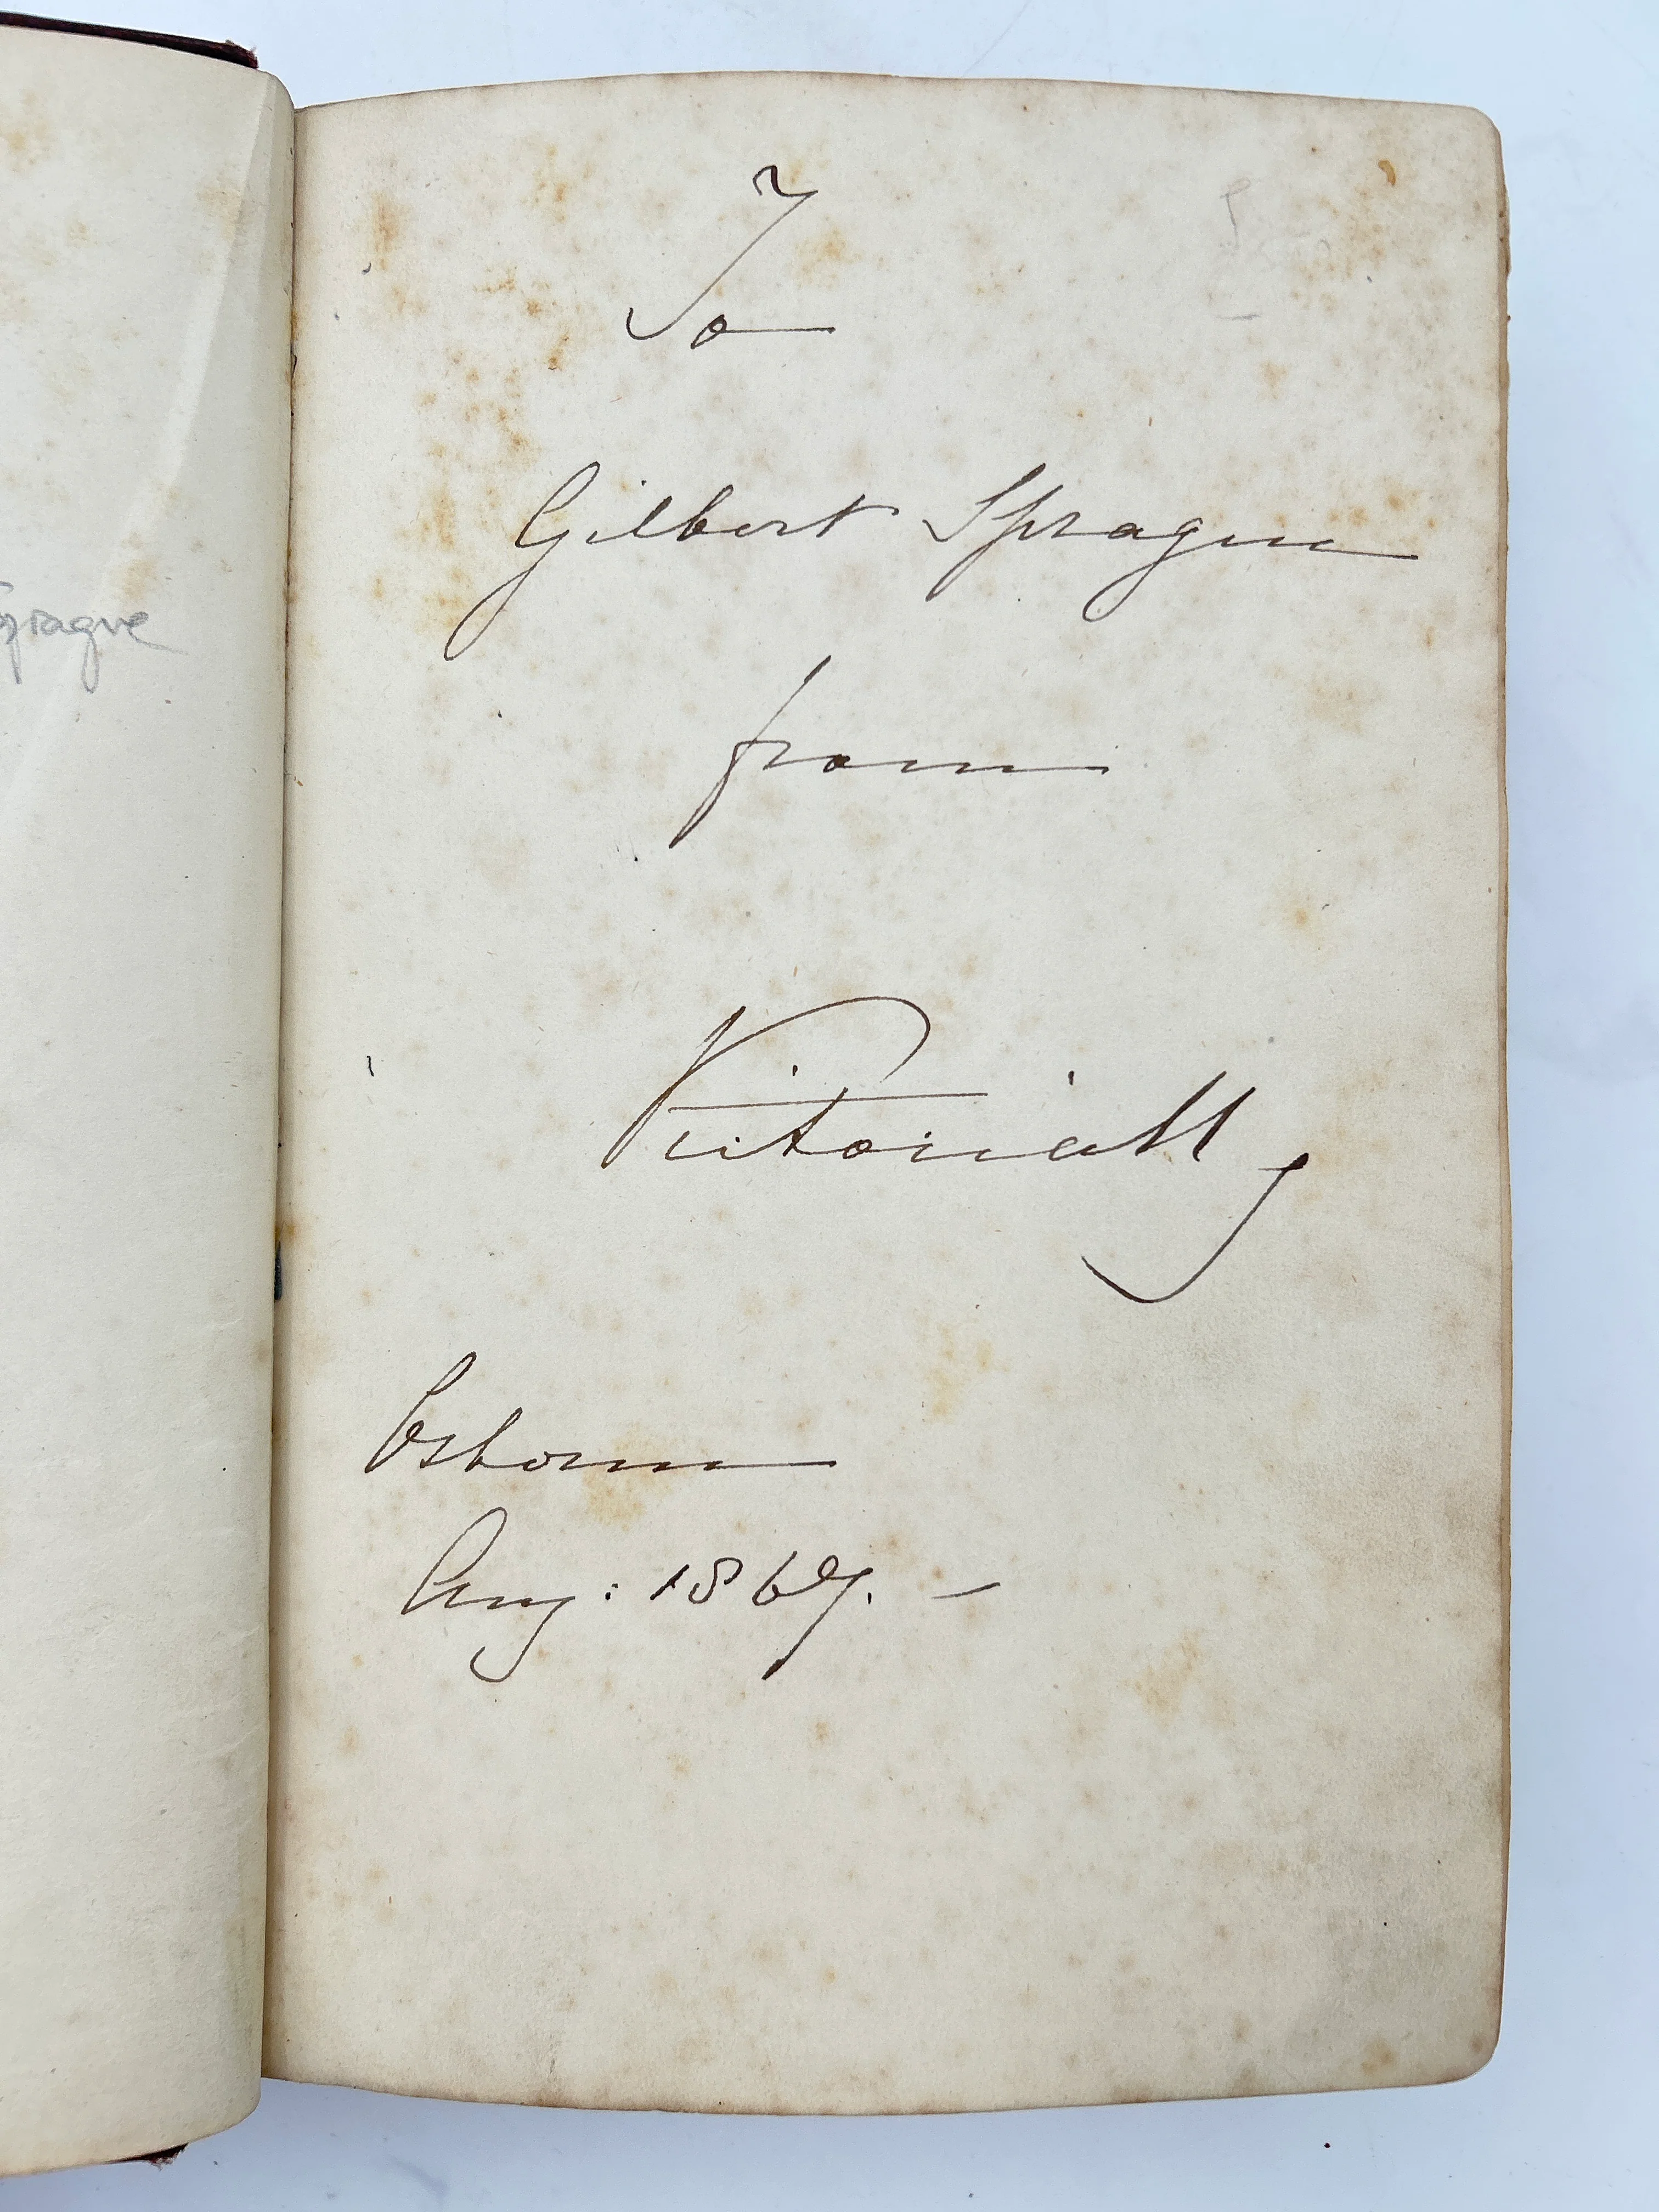 Sprague
To
Gilbert Sprague
from
Victoria R
Osborne
Aug: 1867. –